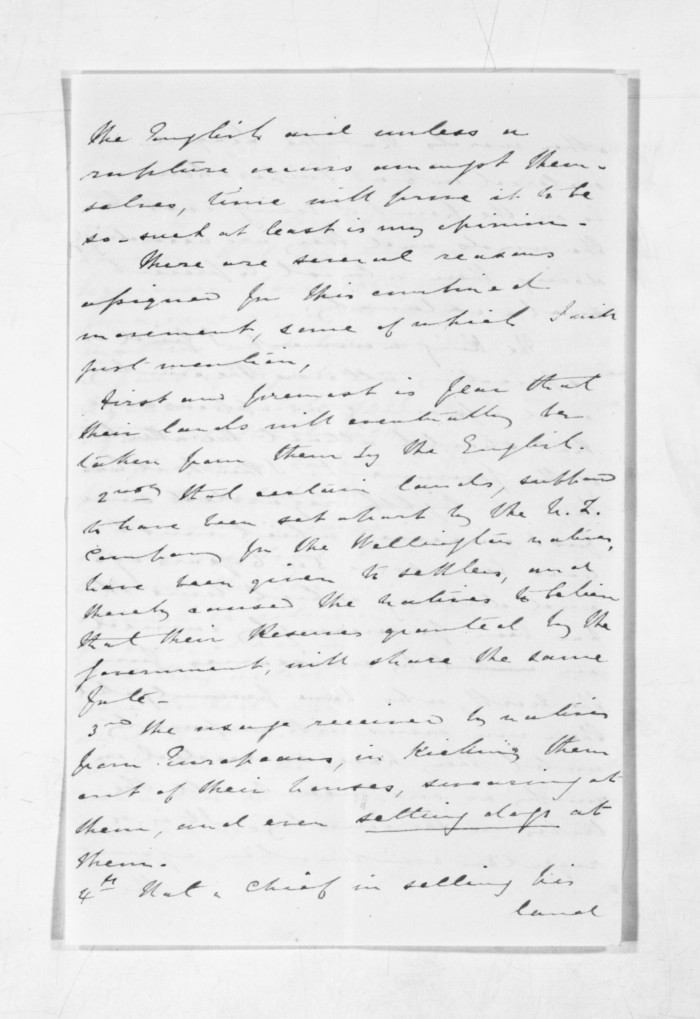 the English and unless a
rupture occurs amongst them-
selves, time will prove it to be
so - such at least is my opinion -
There are several reasons
assigned for this combined
movement, some of which I will
just mention,
First and foremost is fear that
their lands will eventually be
taken from them by the English.
2ndly that certain lands, supposed
to have been set apart by the N. Z.
Company for the Wellington natives,
have been given to settlers, and
thereby caused the natives to believe
that their Reserves granted by the
Government, will share the same
fate -
3rd the usage received by natives
from Europeans, in Kicking them
out of their houses, swearing at
them, and even setting dogs at
them.
4th That a Chief in selling his
land